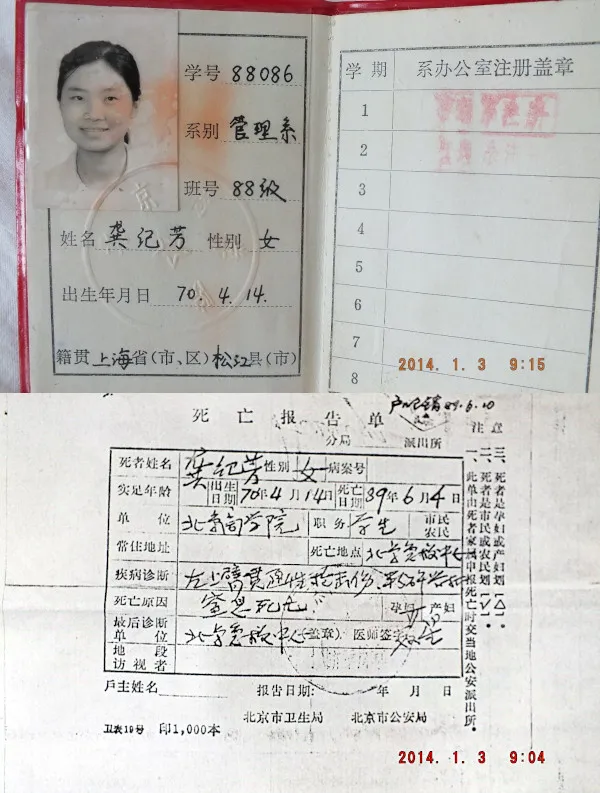 学号 88086
系别 管理系
班号 88级
姓名 龚纪芳 性别 女
出生年月日 70.4.14.
籍贯 上海省(市、区)松江县(市)
学期 系办公室注册盖章
1
2
3
4
5
6
7
8
2014. 1. 3 9:15
死亡报告单
89.6.10
分局 派出所
注意
死者姓名 龚纪芳 性别 女 病案号
实足年龄 出生日期 70年4月14日 死亡日期 89年6月4日
单位 北京商学院 职务 学生 市民 农民
常住地址 死亡地点 北京急救中心
疾病诊断 左上臂贯通性枪击伤
死亡原因 孕妇 产妇
最后诊断单位 北京急救中心(盖章) 医师签字
地段访视者
一、此单由死者家属申报死亡时交当地公安派出所。
二、死者是市民或农民划〔√〕
三、死者是孕妇或产妇划〔△〕
户主姓名 报告日期: 年 月 日
北京市卫生局 北京市公安局
卫表19号 印1,000本
2014. 1. 3 9:04